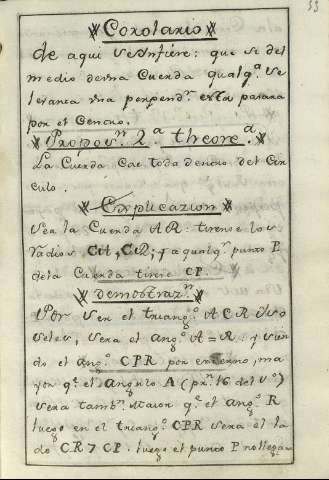 33
Corolario
de aqui se infiere: que si del
medio de una Cuerda qualq.ª se
levanta una perpend.r esta pasara
por el Centro.
Propos.n 2.ª theore.ª
La Cuerda Cae toda dentro del Cir
culo.
Explicazion
Sea la Cuenda A R: tirense los
radios, Ca, CR; y a qualq.r punto P.
de la Cuerda tirese CP.
Demostraz.n
Por ser el triang.o A C R Yso
seles, sera el ang.o A = R: y sien
do el ang.o CPR por externo, ma
yor q.e el angulo A (pr.n 16 del 1.o)
sera tamb.n maior q.e el ang.o R
luego en el triang.o CPR sera el la
do CR 7 CP. luego el punto P no llega